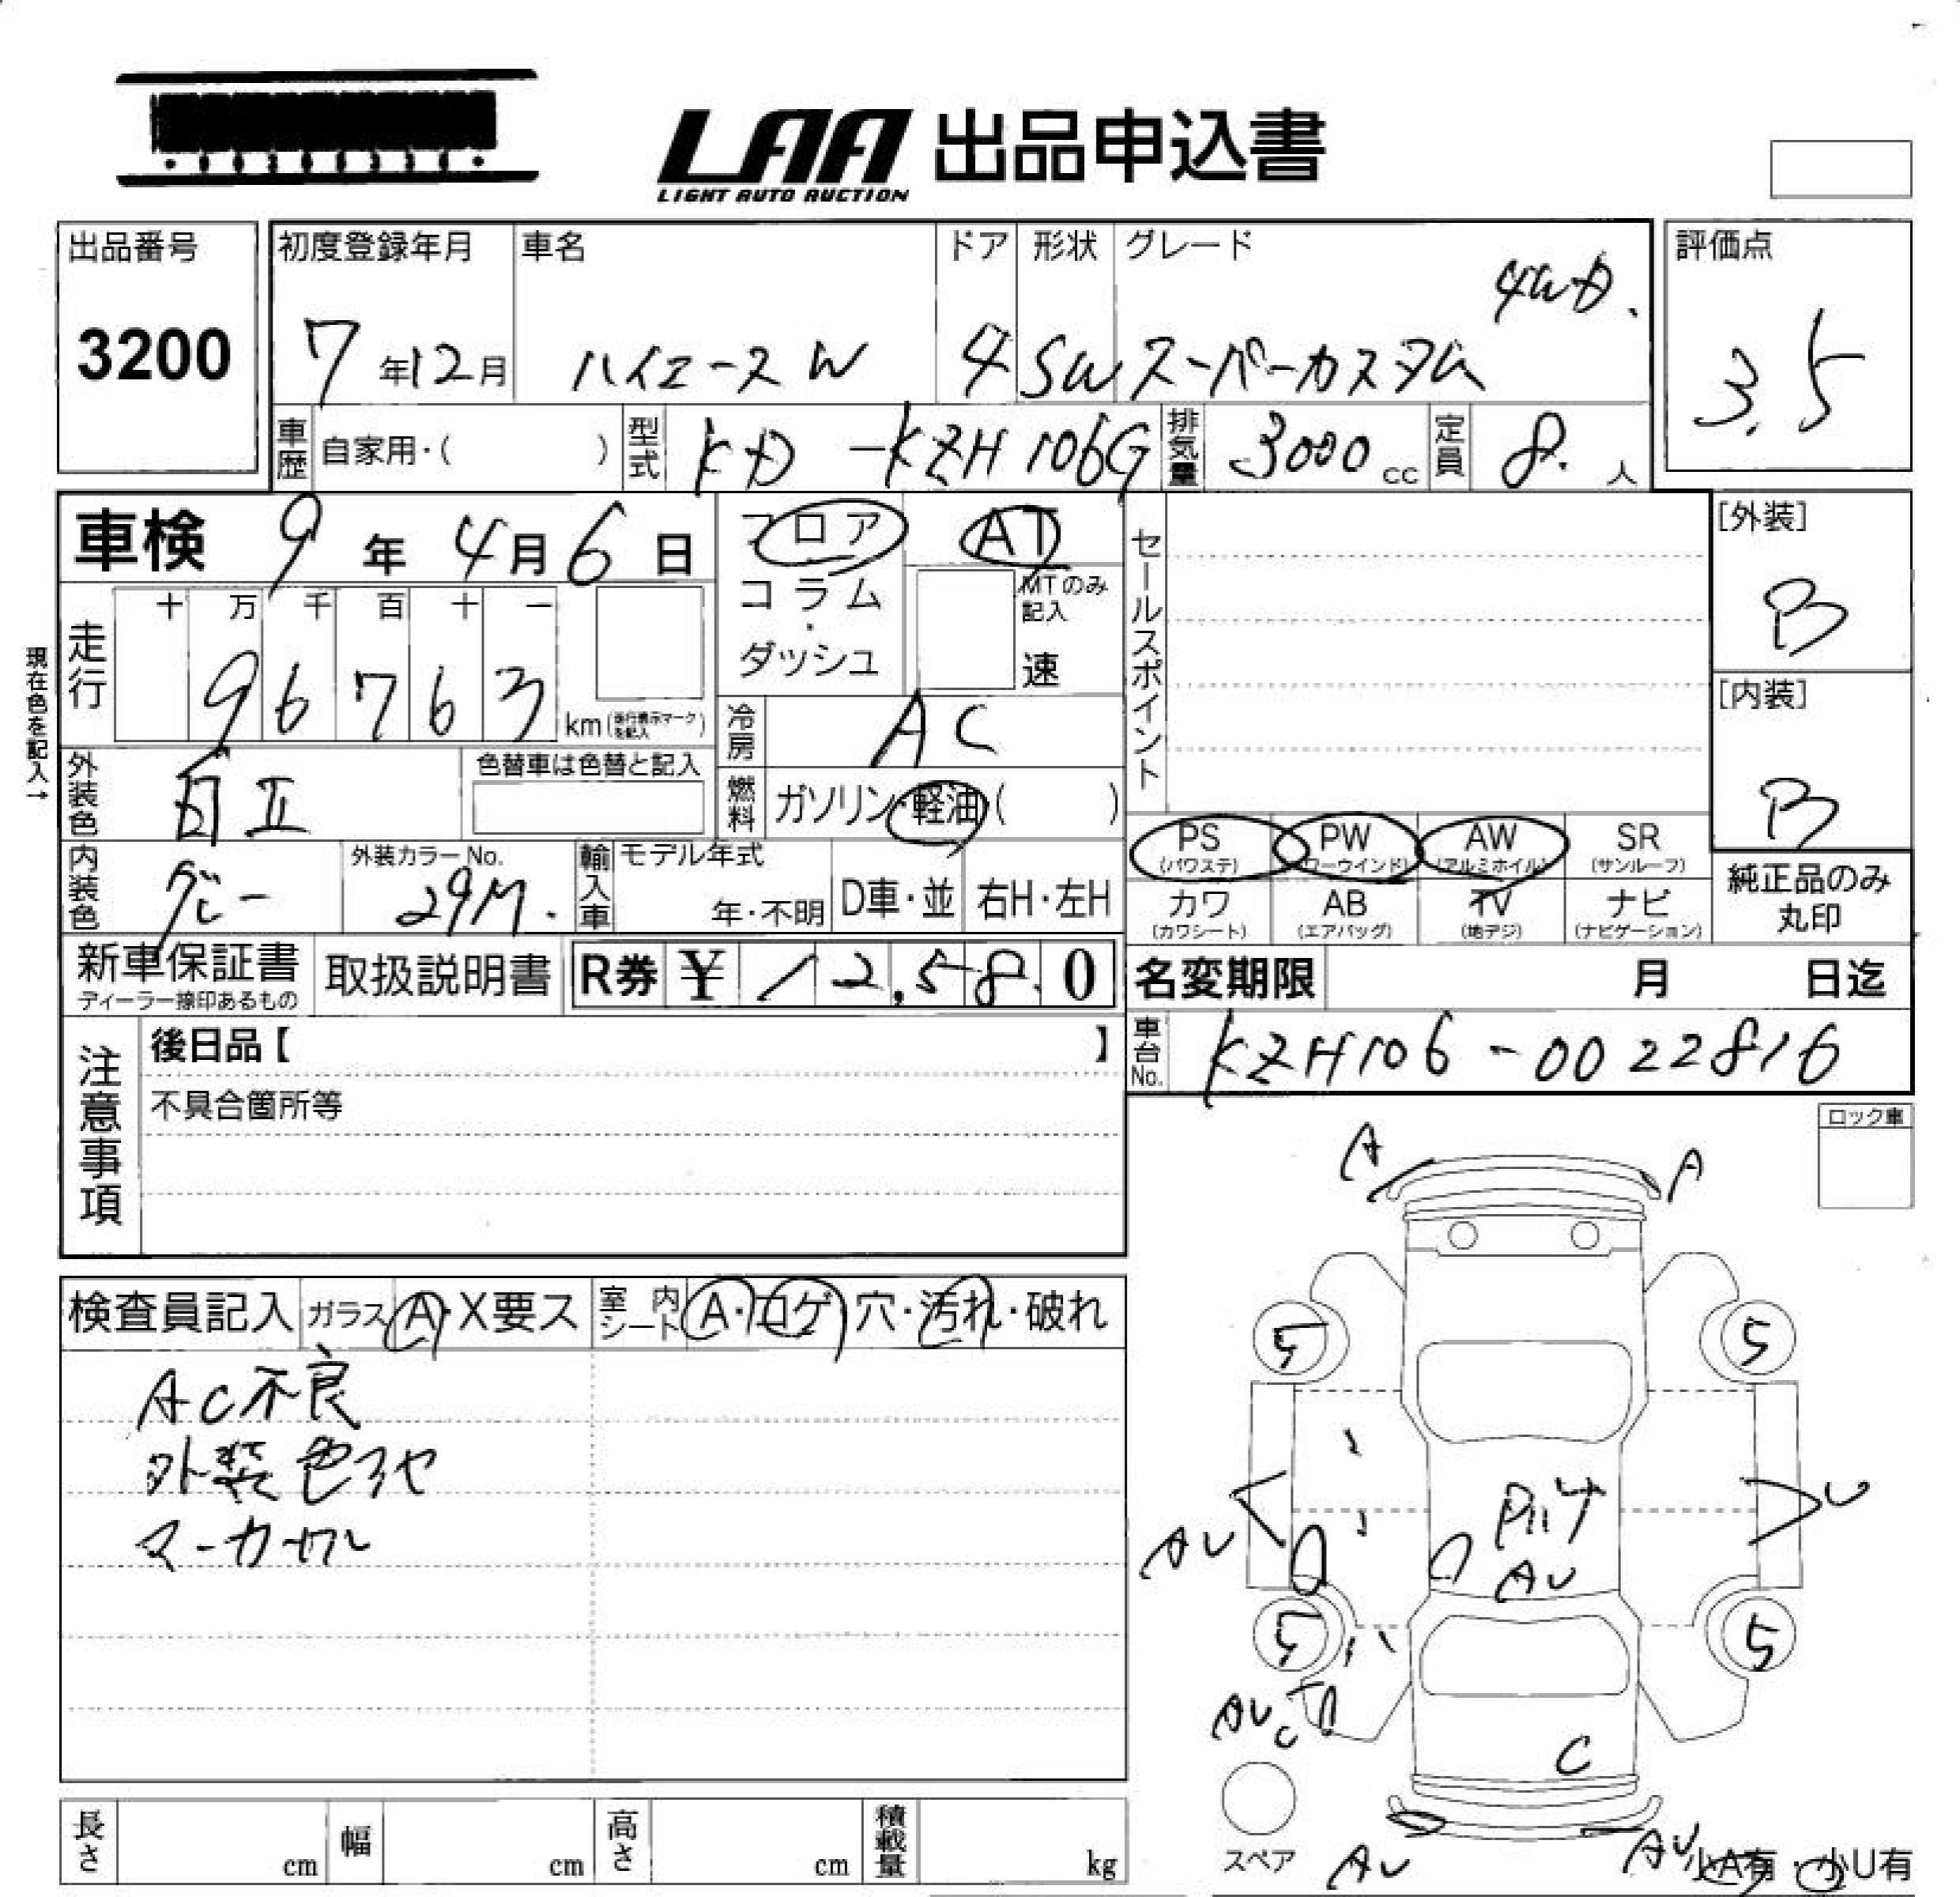 LAA 出品申込書
LIGHT AUTO AUCTION
出品番号
3200
初度登録年月
7年12月
車名
ハイエースW
ドア
4
形状
SW
グレード
4WD.
スーパーカスタム
評価点
3.5
車歴 自家用・( )
型式 KD-KZH106G
排気量 3000cc
定員 8.人
車検 9年4月6日
フロア
コラム
・
ダッシュ
AT
MTのみ記入
速
セールスポイント
[外装]
B
[内装]
B
現在色を記入→
走行
十 万 千 百 十 一
9 6 7 6 3 km (走行表示マークを記入)
冷房 AC
外装色 白II
色替車は色替と記入
燃料 ガソリン・軽油・( )
PS (パワステ)
PW (パワーウインド)
AW (アルミホイル)
SR (サンルーフ)
内装色 グレー
外装カラーNo.
29M.
輸入車
モデル年式
年・不明
D車・並
右H・左H
カワ (カワシート)
AB (エアバッグ)
TV (地デジ)
ナビ (ナビゲーション)
純正品のみ
丸印
新車保証書
ディーラー捺印あるもの
取扱説明書
R券 ¥12,580
名変期限 月 日迄
車台No. KZH106-0022816
注意事項
後日品【 】
不具合箇所等
ロック車
A A
検査員記入
ガラス A・X要ス
室内シート A・コゲ・穴・汚れ・破れ
AC不良
外装色アセ
マーカーワレ
5 5
AU
U
AU
5 5
AU
C
C
スペア
AU
AU
小A有・小U有
長さ cm
幅 cm
高さ cm
積載量 kg